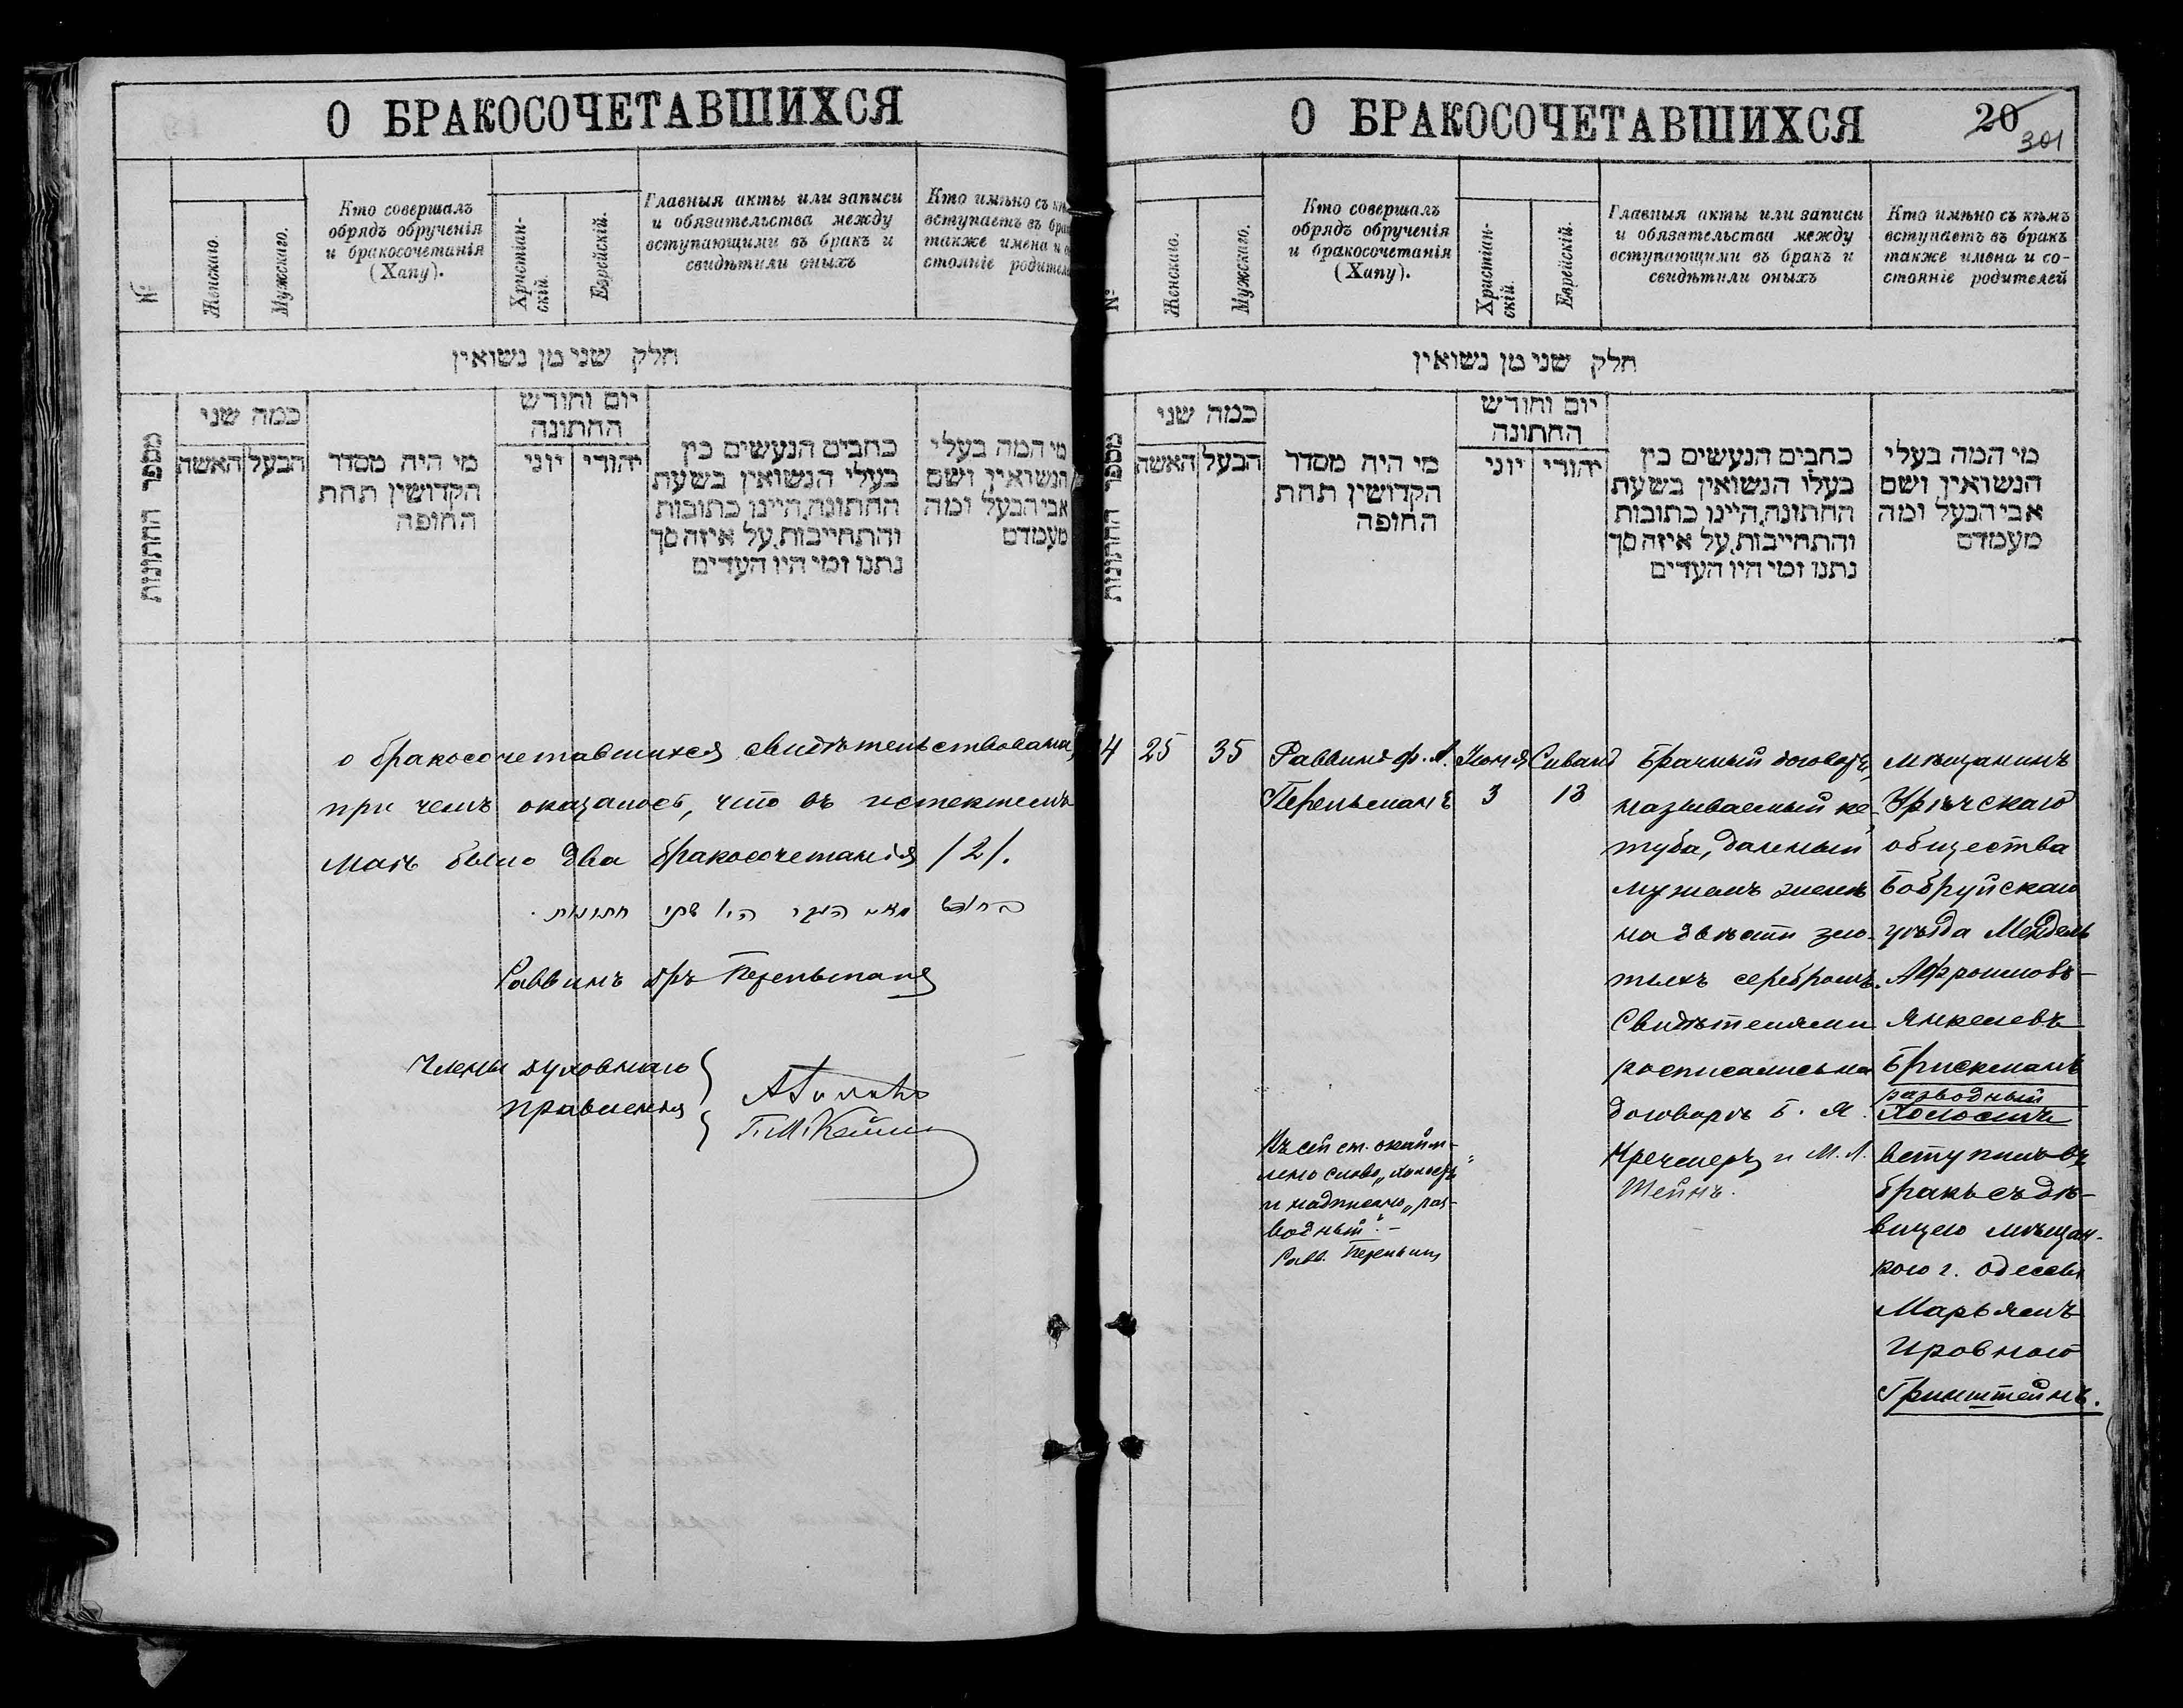 О БРАКОСОЧЕТАВШИХСЯ
№
Женскаго.
Мужскаго.
Кто совершалъ
обрядъ обрученія
и бракосочетанія
(Хапу).
Христіан-
скій.
Еврейскій.
Главныя акты или записи
и обязательства между
вступающими въ бракъ и
свидѣтили оныхъ
Кто имѣно съ
вступаетъ въ
также имена и
стояніе
חלק שני מן נשואין
מספר החתונות
כמה שני
האשה
הבעל
מי היה מסדר
הקדושין תחת
החופה
יום וחודש
החתונה
יוני
יהודי
כתבים הנעשים בין
בעלי הנשואין בשעת
החתונה, היינו כתובות
והתחייבות, על איזה סך
נתנו ומי היו העדים
מי המה בעלי
הנשואין ושם
אבי הבעל ומה
מעמדם
о бракосочетавшихся свидѣтельствована,
при чемъ оказалось, что въ истекшемъ
маѣ было два бракосочетанія /2/.
היו שתי חתונות.
Раввинъ др Перельманъ
Члены духовнаго
правленія
О БРАКОСОЧЕТАВШИХСЯ
20
301
№
Женскаго.
Мужскаго.
Кто совершалъ
обрядъ обрученія
и бракосочетанія
(Хапу).
Христіан-
скій.
Еврейскій.
Главныя акты или записи
и обязательства между
вступающими въ бракъ и
свидѣтили оныхъ
Кто имѣно съ кѣмъ
вступаетъ въ бракъ
также имена и со-
стояніе родителей
חלק שני מן נשואין
מספר החתונות
כמה שני
האשה
הבעל
מי היה מסדר
הקדושין תחת
החופה
יום וחודש
החתונה
יוני
יהודי
כתבים הנעשים בין
בעלי הנשואין בשעת
החתונה, היינו כתובות
והתחייבות, על איזה סך
נתנו ומי היו העדים
מי המה בעלי
הנשואין ושם
אבי הבעל ומה
מעמדם
4
25
35
Раввинъ ф. А.
Перельманъ
Іюня
3
Сиванъ
13
Брачный договоръ,
называемый ке-
туба, данный
мужемъ женѣ
на двѣсти зло-
тыхъ серебромъ.
Свидѣтелями
росписались на
договорѣ Б. Я.
Кречмеръ и М. Л.
Штейнъ.
Мѣщанинъ
Урѣчскаго
общества
Бобруйскаго
уѣзда Мендель
Афроимовъ-
Янкелевъ
Брискманъ
разводный
Холостъ
вступилъ въ
бракъ съ дѣ-
вицею мѣщан-
кою г. Одессы
Марьямъ
Гринштейнъ.
Въ сей ст. окайм-
лено слово „холостъ“
и надписано „раз-
водный“. —
Равв. Перельманъ